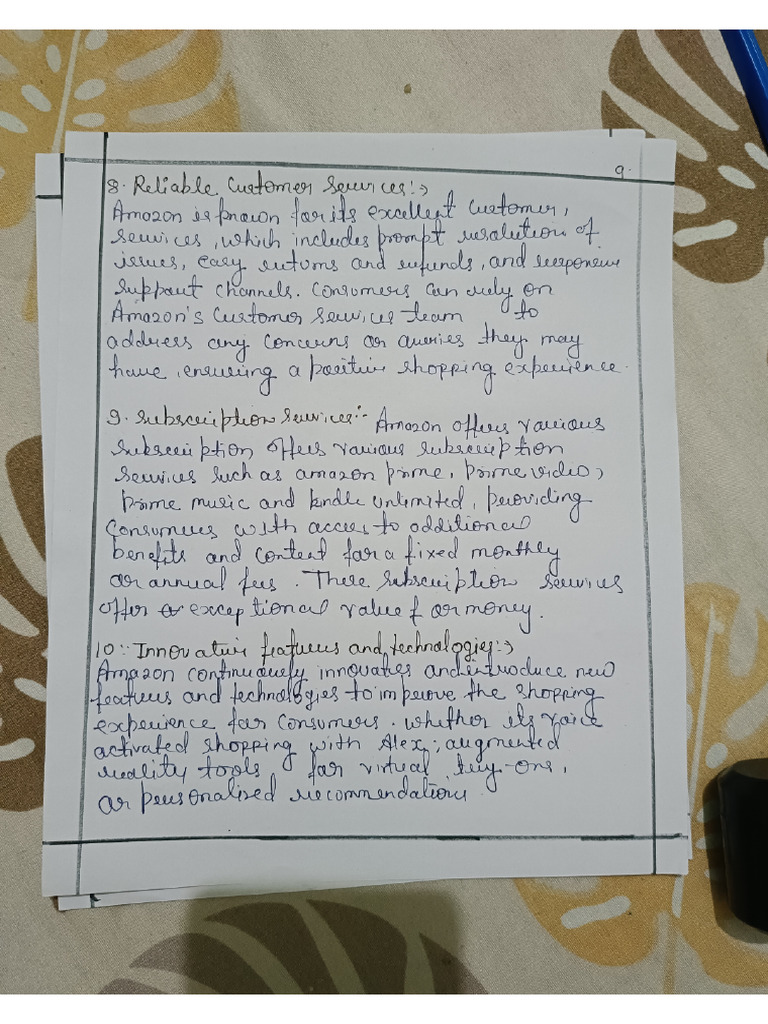 9.
8. Reliable Customer Services:->
Amazon is known for its excellent Customer,
services, which includes prompt resolution of
issues, easy returns and refunds, and responsive
support channels. Consumers can rely on
Amazon's Customer services team to
address any concerns or queries they may
have, ensuring a positive shopping experience.
9. Subscription Services:- Amazon offers various
subscription offers various subscription
services such as amazon prime, prime video,
prime music and kindle unlimited, providing
Consumers with access to additional
benefits and content for a fixed monthly
or annual fees. These subscription services
offer exceptional value for money.
10:- Innovative features and technologies:->
Amazon continuously innovates and introduce new
features and technologies to improve the shopping
experience for consumers. Whether its voice
activated shopping with Alex; augmented
reality tools for virtual buy-ons,
or personalized recommendations